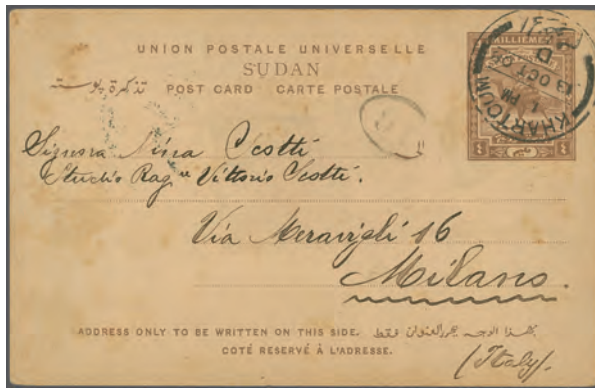 MILLIEMES
UNION POSTALE UNIVERSELLE
SUDAN
تذكرة بوستة POST CARD CARTE POSTALE
KHARTOUM
13 OCT
1 PM
4 4
Signora Nina Scotti
Studio Rag. Vittorio Scotti.
Via Meravigli 16
Milano.
ADDRESS ONLY TO BE WRITTEN ON THIS SIDE. بهذا الوجه يحرر العنوان فقط
COTÉ RESERVÉ À L'ADRESSE.
(Italy).